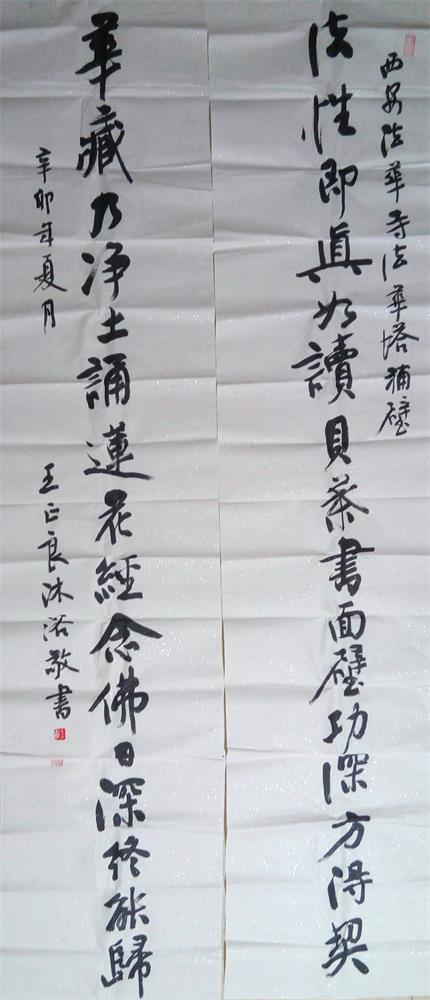 西安法華寺法華塔補壁
法性即真如讀貝葉書面壁功深方得契
華藏乃净土誦蓮花經念佛日深終能歸
辛卯年夏月
王正良沐浴敬書